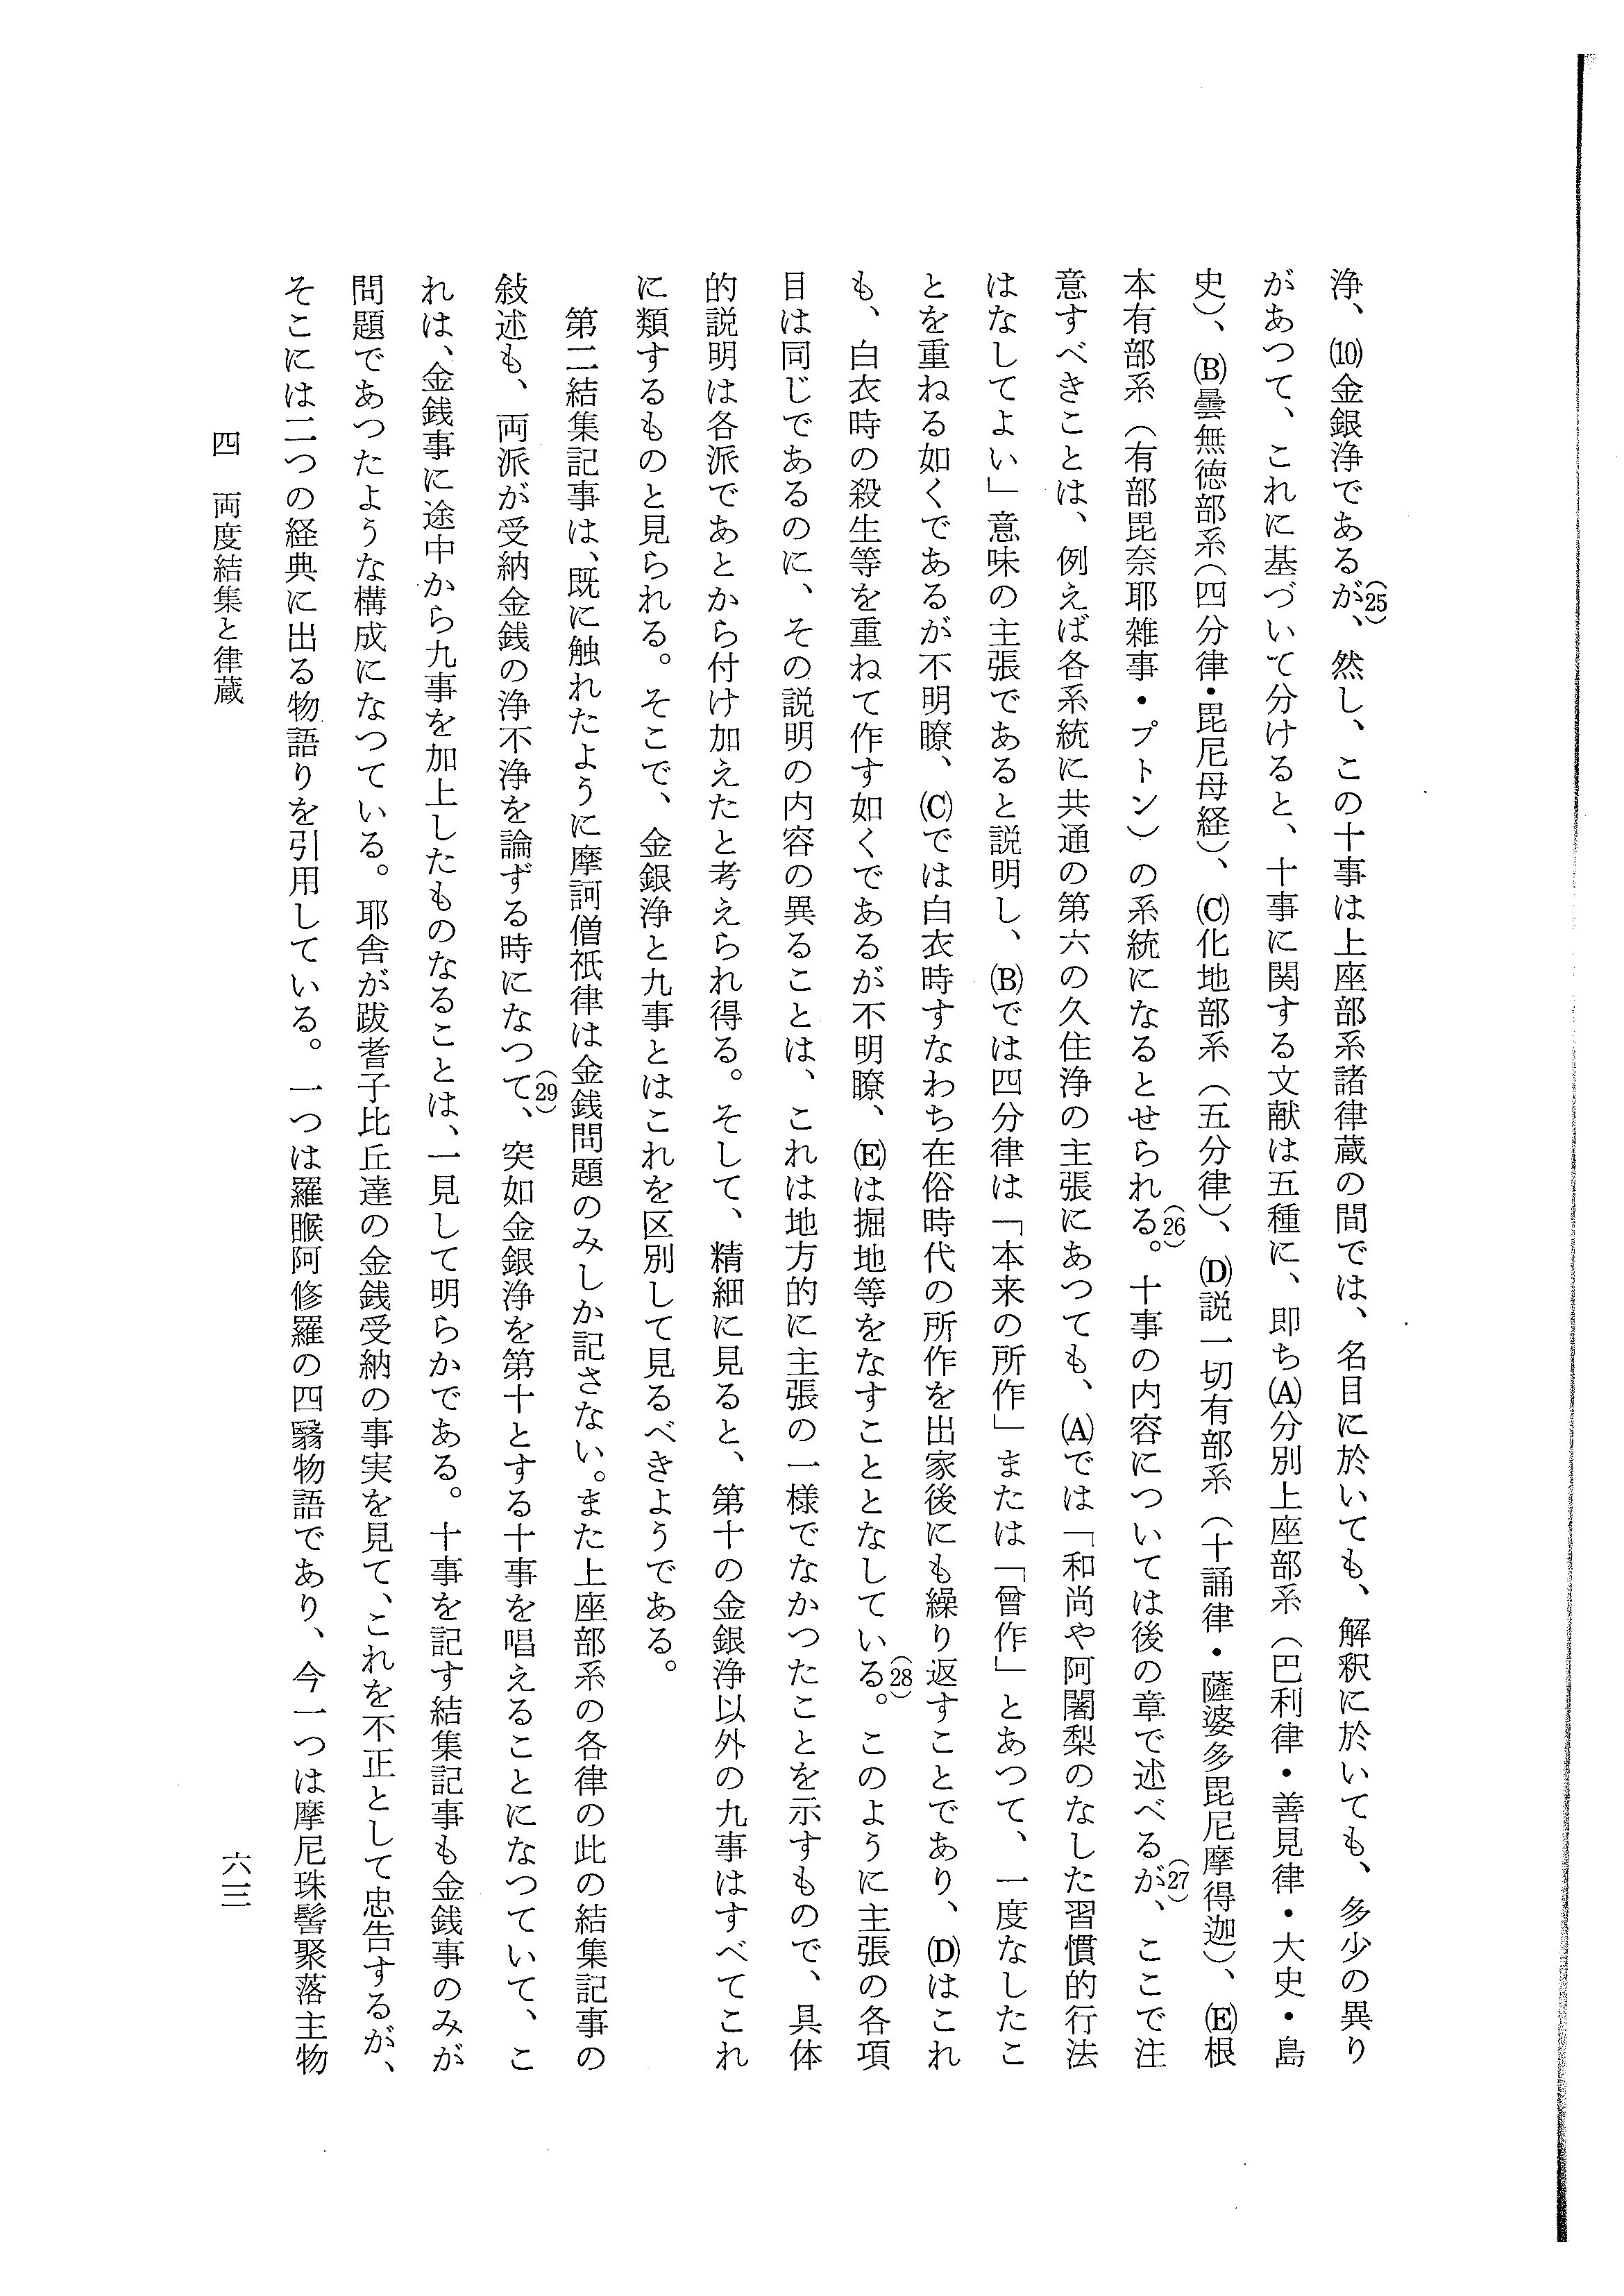 浄、⑽金銀浄であるが、(25)然し、この十事は上座部系諸律蔵の間では、名目に於いても、解釈に於いても、多少の異り
があつて、これに基づいて分けると、十事に関する文献は五種に、即ち(A)分別上座部系（巴利律・善見律・大史・島
史）、(B)曇無徳部系（四分律・毘尼母経）、(C)化地部系（五分律）、(D)説一切有部系（十誦律・薩婆多毘尼摩得迦）、(E)根
本有部系（有部毘奈耶雑事・プトン）の系統になるとせられる。(26)十事の内容については後の章で述べるが、(27)ここで注
意すべきことは、例えば各系統に共通の第六の久住浄の主張にあつても、(A)では「和尚や阿闍梨のなした習慣的行法
はなしてよい」意味の主張であると説明し、(B)では四分律は「本来の所作」または「曾作」とあつて、一度なしたこ
とを重ねる如くであるが不明瞭、(C)では白衣時すなわち在俗時代の所作を出家後にも繰り返すことであり、(D)はこれ
も、白衣時の殺生等を重ねて作す如くであるが不明瞭、(E)は掘地等をなすこととなしている。(28)このように主張の各項
目は同じであるのに、その説明の内容の異ることは、これは地方的に主張の一様でなかつたことを示すもので、具体
的説明は各派であとから付け加えたと考えられ得る。そして、精細に見ると、第十の金銀浄以外の九事はすべてこれ
に類するものと見られる。そこで、金銀浄と九事とはこれを区別して見るべきようである。
第二結集記事は、既に触れたように摩訶僧祇律は金銭問題のみしか記さない。また上座部系の各律の此の結集記事の
敍述も、両派が受納金銭の浄不浄を論ずる時になつて、(29)突如金銀浄を第十とする十事を唱えることになつていて、こ
れは、金銭事に途中から九事を加上したものなることは、一見して明らかである。十事を記す結集記事も金銭事のみが
問題であつたような構成になつている。耶舎が跋耆子比丘達の金銭受納の事実を見て、これを不正として忠告するが、
そこには二つの経典に出る物語りを引用している。一つは羅睺阿修羅の四翳物語であり、今一つは摩尼珠髻聚落主物
四　両度結集と律蔵
六三